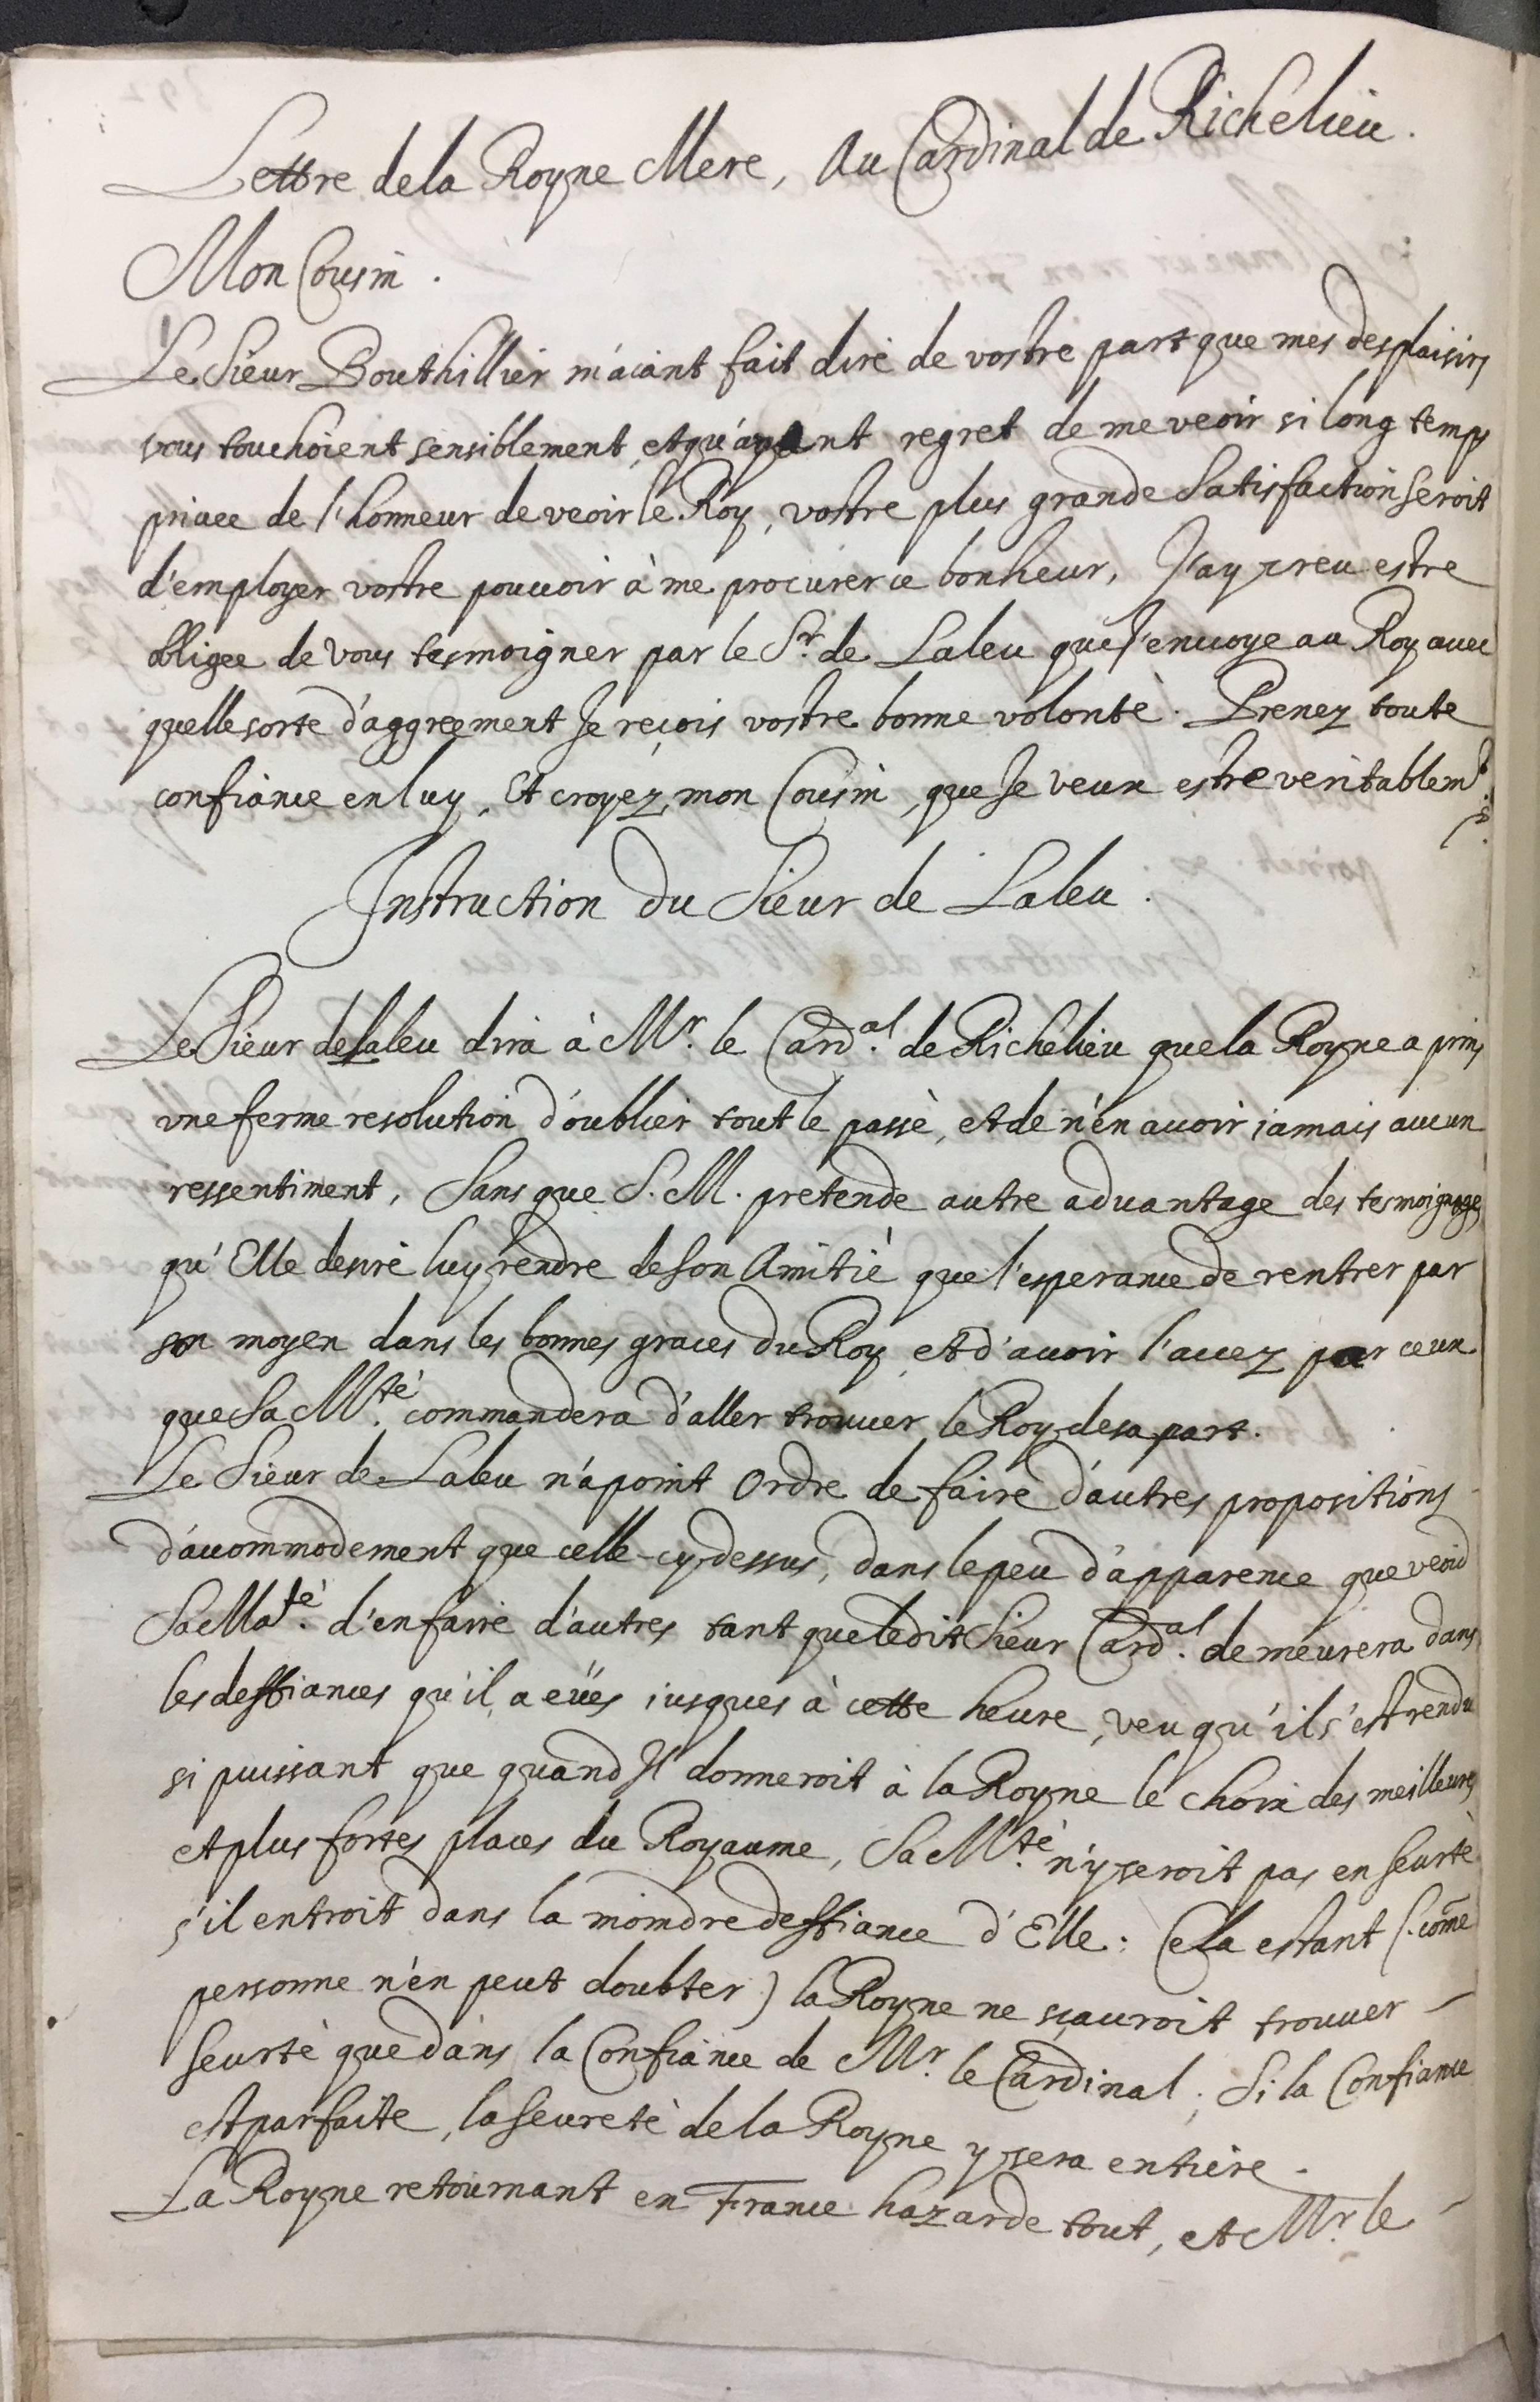 Lettre de la Royne Mere, Au Cardinal de Richelieu.
Mon Cousin.
Le Sieur Bouthillier m'aiant fait dire de vostre part que mes desplaisirs
vous touchoient sensiblement, et qu'ayant regret de me veoir si long temps
privee de l'honneur de veoir le Roy, vostre plus grande Satisfaction Seroit
d'employer vostre pouvoir à me procurer ce bonheur, J'ay creu estre
obligee de vous tesmoigner par le Sr. de Laleu que J'envoye au Roy avec
quelle sorte d'aggreement Je reçois vostre bonne volonté. Prenez toute
confiance en luy, Et croyez, mon Cousin, que Je veux estre veritablemt.
Instruction du Sieur de Laleu.
Le Sieur de Laleu dira à Mr. le Card.al de Richelieu que la Royne a prins
une ferme resolution d'oublier tout le passé, et de n'en avoir jamais aucun
ressentiment, Sans que S. M. pretende autre advantage des tesmoignages
qu'Elle desire luy rendre de son Amitié que l'esperance de rentrer par
son moyen dans les bonnes graces du Roy, et d'avoir l'accez par ceux
que Sa M.té commandera d'aller trouver le Roy de sa part.
Le Sieur de Laleu n'a point Ordre de faire d'autres propositions
d'accommodement que celle-cy dessus, dans le peu d'apparence que veoid
Sa Ma.té d'en faire d'autres tant que ledit Sieur Card.al demeurera dans
les deffiances qu'il a eües jusques à cette heure, veu qu'il s'est rendu
si puissant que quand Il donneroit à la Royne le choix des meilleures
et plus fortes places du Royaume, Sa M.té n'y seroit pas en seurté
s'il entroit dans la moindre deffiance d'Elle: Cela estant (come
personne n'en peut doubter) la Royne ne sçauroit trouver
seurté que dans la Confiance de Mr. le Cardinal; Si la Confiance
est parfaite, la seureté de la Royne y sera entiere.
La Royne retournant en France hazarde tout, et Mr. le